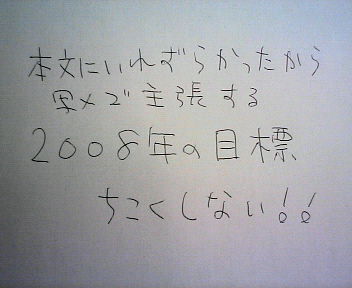 本文にいれずらかったから
写メで主張する
2008年の目標
ちこくしない!!